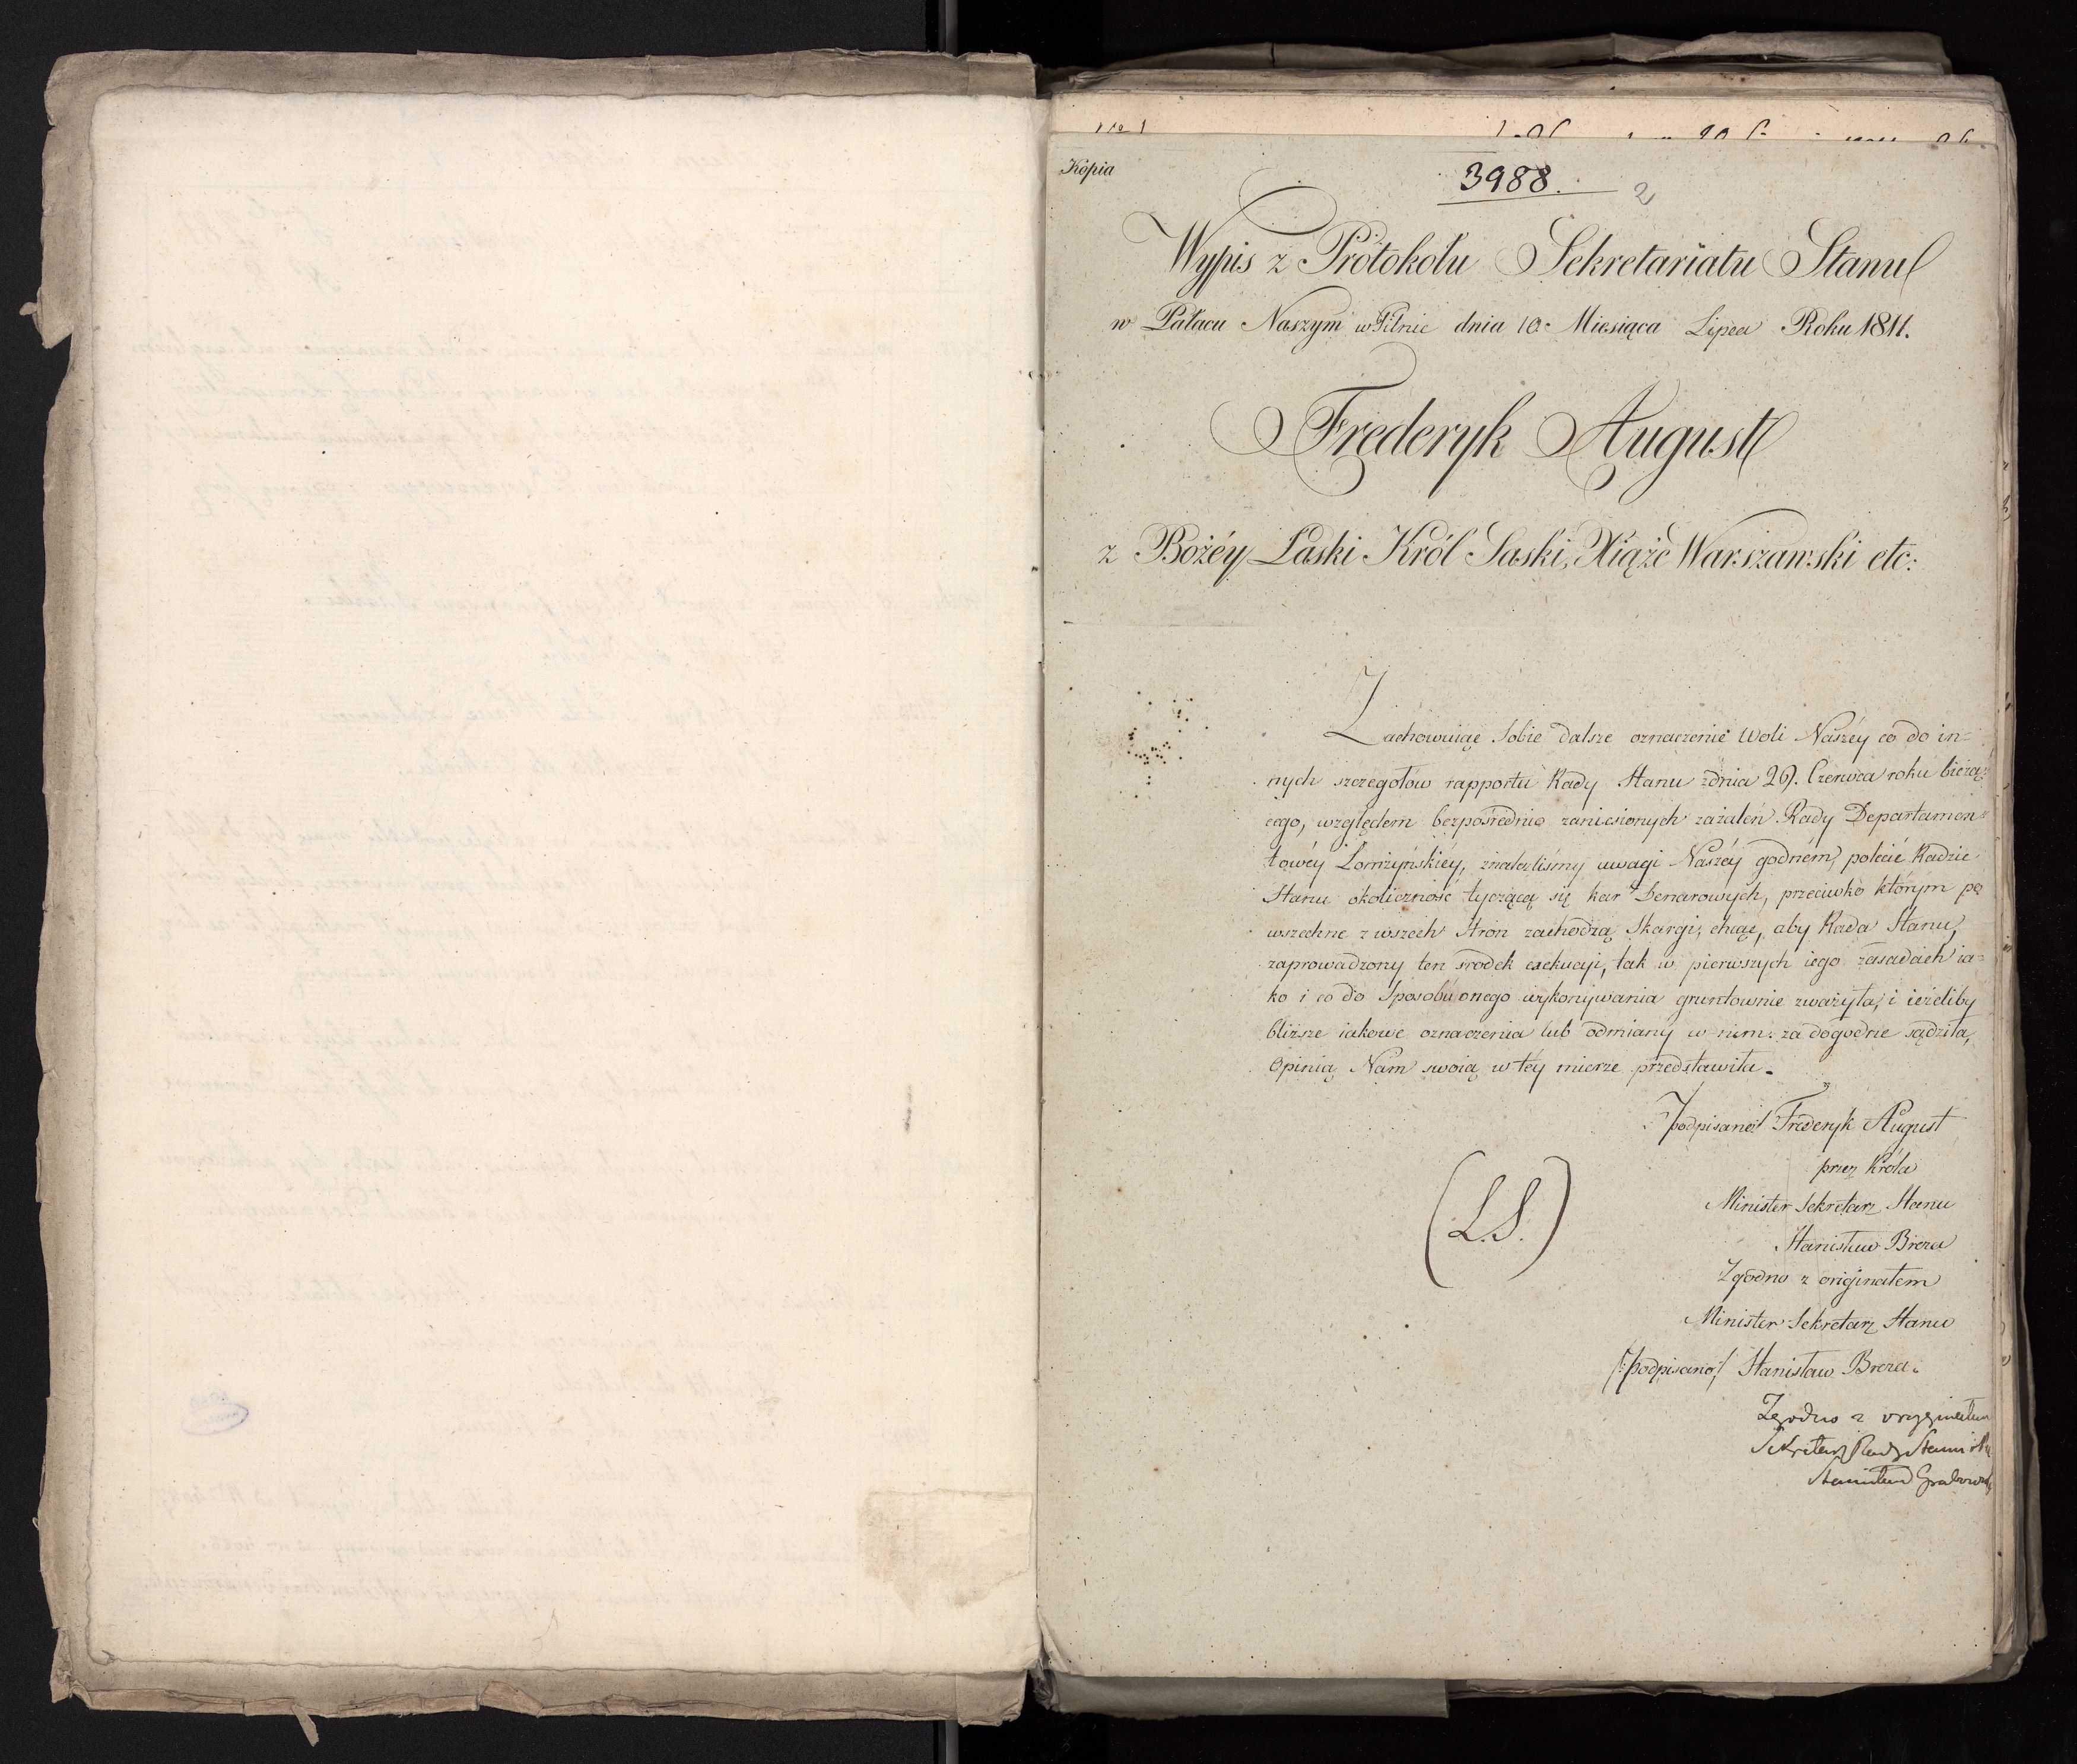 Kopia
3988. 2
Wypis z Protokołu Sekretariatu Stanu
w Pałacu Naszym w Pilnic dnia 10. Miesiąca Lipca Roku 1811.
Frederyk August
z Bożéy Łaski Król Saski, Xiąże Warszawski etc:
Zachowuiąc Sobie dalsze oznaczenie Woli Naszéy co do in=
nych szczegołow rapportu Rady Stanu z dnia 29. Czerwca roku bieżą=
cego, względem bezpośrednio zaniesionych zażaleń Rady Departamen=
towéy Łomżyńskiéy, znaleźliśmy uwagi Naszéy godném, polecić Radzie
Stanu okoliczność tyczącą się kar Denarowych, przeciwko którym po
wszechne z wszech stron zachodzą Skargi; chcąc, aby Rada Stanu,
zaprowadzony ten środek exekucyi, tak w pierwszych iego zasadach ia=
ko i co do Sposobu onego wykonywania gruntownie zważyła; i ieżeliby
bliższe iakowe oznaczenia lub odmiany w nim za dogodne sądziła,
Opinią Nam swoią w téy mierze przedstawiła.
/podpisano/ Frederyk August
przez Króla
Minister Sekretarz Stanu
(L.S.)
Stanisław Breza
Zgodno z originałem
Minister Sekretarz Stanu
/:podpisano:/ Stanisław Breza.
Zgodno z oryginałem
Sekretarz Rady Stanu
Stanisław Grabowski